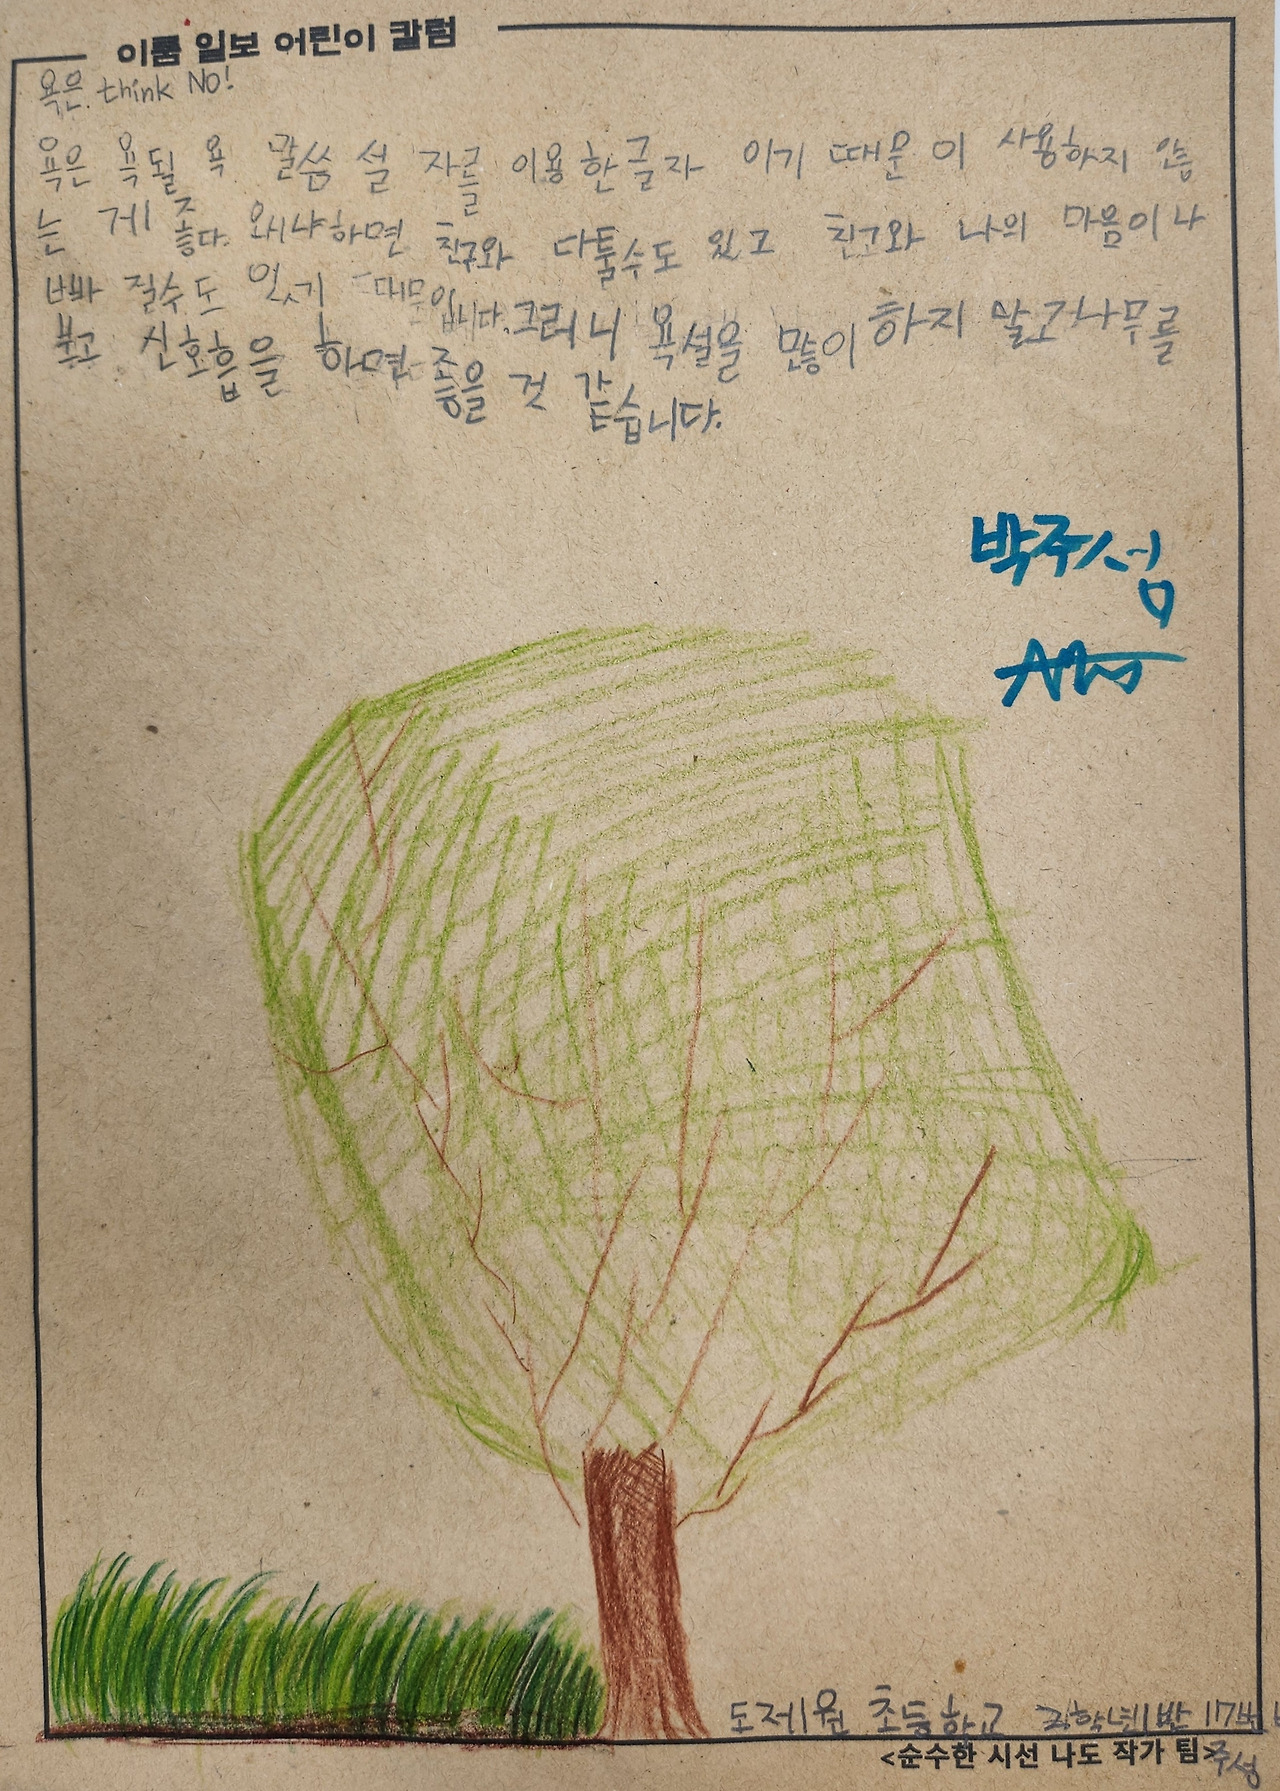 이룸 일보 어린이 칼럼
욕은. think No!
욕은 욕될 욕 말씀 설 자를 이용한글자 이기 때문이 사용하지 않
는 게 좋다. 왜냐하면 친구와 다툴수도 있고 친고와 나의 마음이나
빠 질수도 있기 때문입니다. 그러니 욕설을 많이 하지 말고 나무를
보고 심호흡을 하면 좋을 것 같습니다.
박주성
도제원 초등학교 학년1반 17번
<순수한 시선 나도 작가 팀>
주성